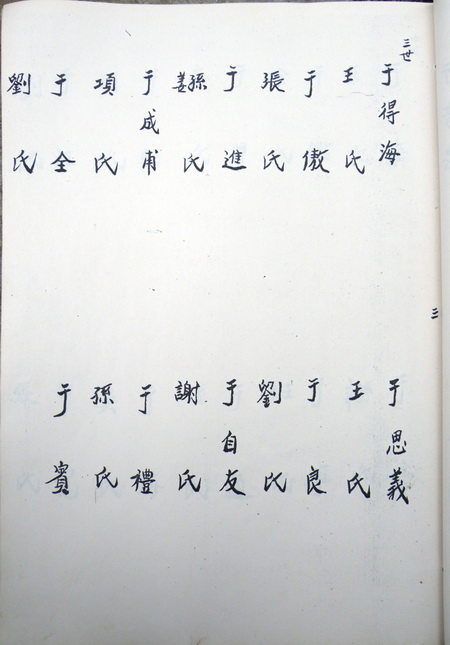 三世
于得海
王氏
于傲
張氏
于進
孫姜氏
于成甫
項氏
于全
劉氏
于思義
王氏
于良
劉氏
于自友
謝氏
于禮
孫氏
于賓
三